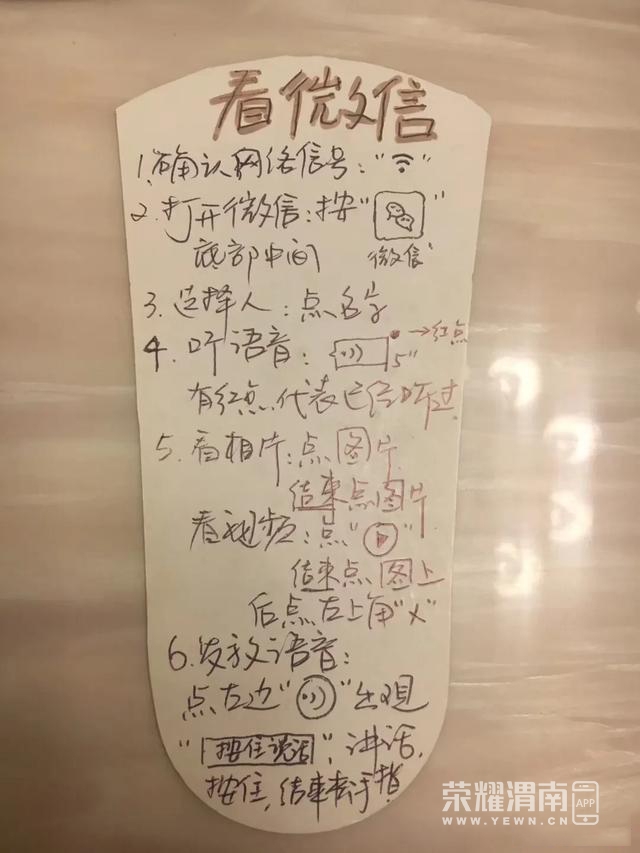 看微信
1.确认网络信号:“ ”
2.打开微信:按“ ”
微信
底部中间
3.选择人:点名字
4.听语音: 5" →红点
有红点代表已经听过
5.看相片:点图片
结束点图片
看视频:点“ ”
结束点图上
后点左上角“×”
6.发放语音:
点左边“ ”出现
“按住说话”,讲话,
按住,结束松手指
荣耀渭南 APP
WWW.YEWN.CN